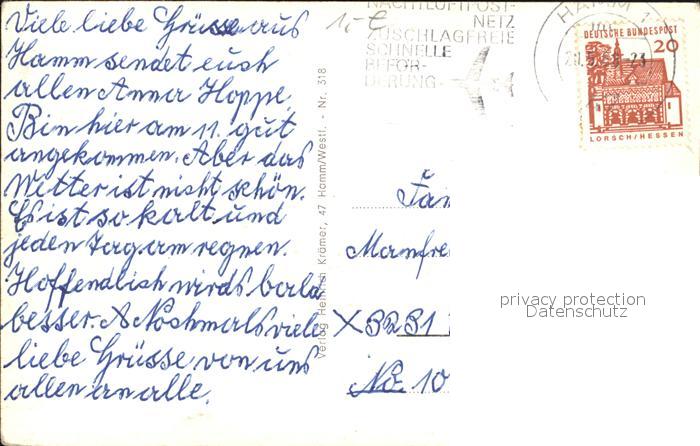 Viele liebe Grüsse aus
Hamm sendet euch
allen Anna Hoppe.
Bin hier am 11. gut
angekommen. Aber das
Wetter ist nicht schön.
Es ist so kalt und
jeden Tag am regnen.
Hoffendlich wirds bald
besser. Nochmals viele
liebe Grüsse von uns
allen an alle.
Verlag Heinrich Krämer, 47 Hamm/Westf. - Nr. 318
NACHTLUFTPOST-
NETZ
ZUSCHLAGFREIE
SCHNELLE
BEFÖR-
DERUNG
HAMM 1
DEUTSCHE BUNDESPOST
20
LORSCH/HESSEN
Fam
Manfre
X 3231
No. 10
privacy protection
Datenschutz